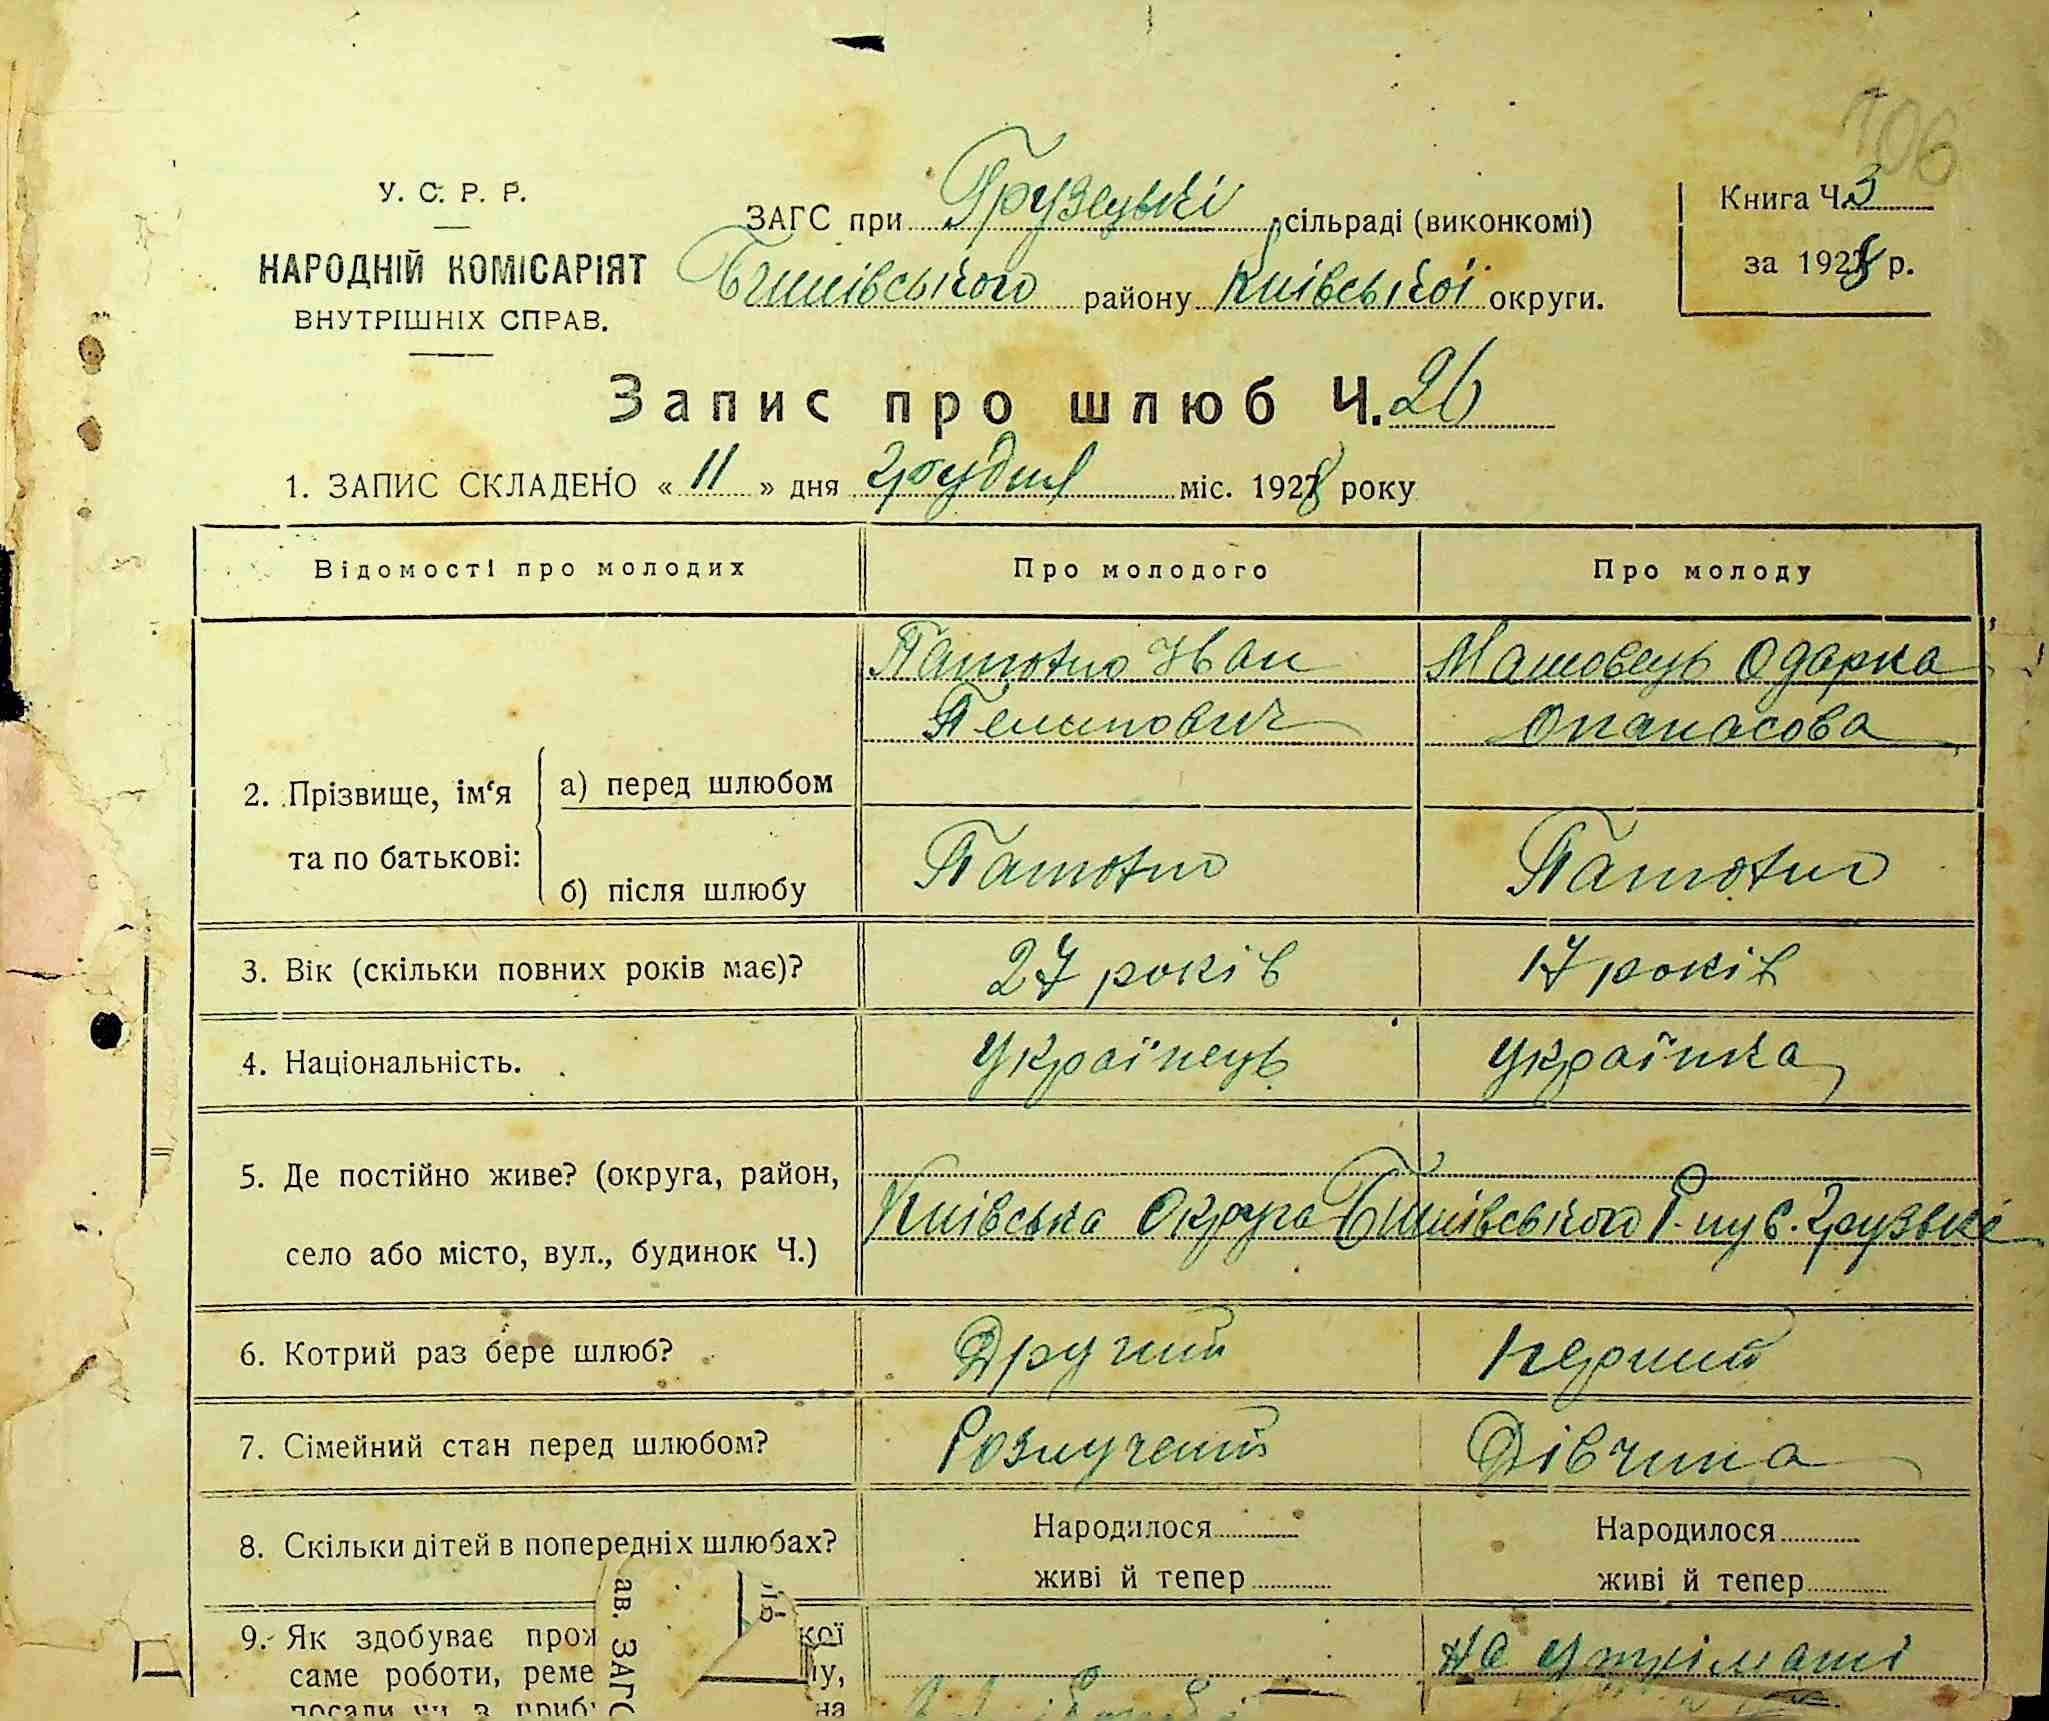 106
У. С. Р. Р.
НАРОДНІЙ КОМІСАРІЯТ
ВНУТРІШНІХ СПРАВ.
ЗАГС при Грузецькі сільраді (виконкомі)
Бишівського району Київської округи.
Книга Ч. 3
за 1928 р.
Запис про шлюб Ч. 26
1. ЗАПИС СКЛАДЕНО « 11 » дня грудня міс. 1928 року
Відомості про молодих
Про молодого
Про молоду
2. Прізвище, ім'я та по батькові:
а) перед шлюбом
Іван
Одарка
Опанасова
б) після шлюбу
3. Вік (скільки повних років має)?
27 років
17 років
4. Національність.
Українець
Українка
5. Де постійно живе? (округа, район,
село або місто, вул., будинок Ч.)
Київська округа Бишівського Р-ну с. Грузьке
6. Котрий раз бере шлюб?
Другий
Перший
7. Сімейний стан перед шлюбом?
Розлучений
Дівчина
8. Скільки дітей в попередніх шлюбах?
Народилося
живі й тепер
Народилося
живі й тепер
9. Як здобуває прож кої
саме роботи, реме у,
посади чи з приб на
ав. ЗАГС
на утрімані